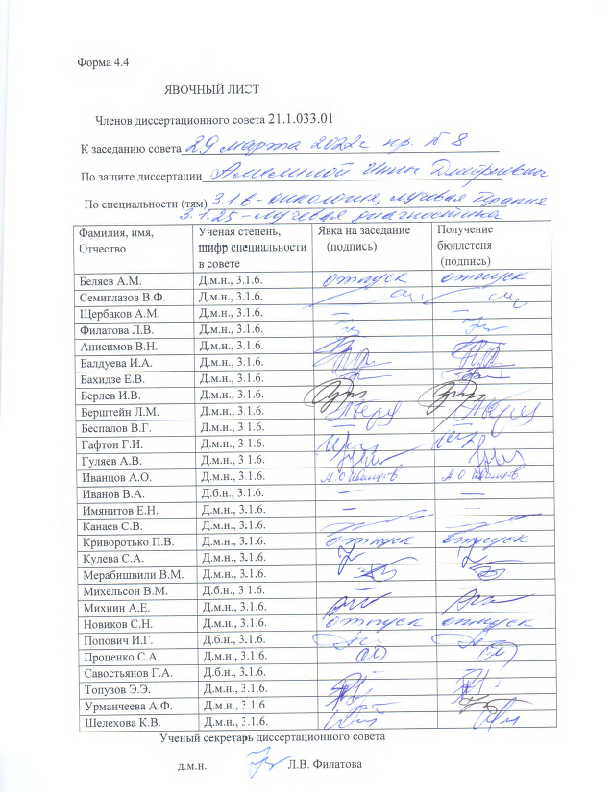 Форма 4.4
ЯВОЧНЫЙ ЛИСТ
Членов диссертационного совета 21.1.033.01
К заседанию совета 29 марта 2022г пр. № 8
По защите диссертации Дмитриевны
По специальности (тям) 3.1.6 - онкология, лучевая терапия
3.1.25 - лучевая диагностика
Фамилия, имя, Отчество Ученая степень, шифр специальности в совете Явка на заседание (подпись) Получение бюллетеня (подпись)
Беляев А.М. Д.м.н., 3.1.6. отпуск отпуск
Семиглазов В.Ф. Д.м.н., 3.1.6.
Щербаков А.М. Д.м.н., 3.1.6. — —
Филатова Л.В. Д.м.н., 3.1.6.
Анисимов В.Н. Д.м.н., 3.1.6.
Балдуева И.А. Д.м.н., 3.1.6.
Бахидзе Е.В. Д.м.н., 3.1.6.
Берлев И.В. Д.м.н., 3.1.6.
Берштейн Л.М. Д.м.н., 3.1.6.
Беспалов В.Г. Д.м.н., 3.1.6. — —
Гафтон Г.И. Д.м.н., 3.1.6.
Гуляев А.В. Д.м.н., 3.1.6.
Иванцов А.О. Д.м.н., 3.1.6. А.О Иванцов А О Иванцов
Иванов В.А. Д.б.н., 3.1.6. — —
Имянитов Е.Н. Д.м.н., 3.1.6. — —
Канаев С.В. Д.м.н., 3.1.6.
Криворотько П.В. Д.м.н., 3.1.6. отпуск отпуск
Кулева С.А. Д.м.н., 3.1.6.
Мерабишвили В.М. Д.м.н., 3.1.6.
Михельсон В.М. Д.б.н., 3.1.6. — —
Михнин А.Е. Д.м.н., 3.1.6.
Новиков С.Н. Д.м.н., 3.1.6. отпуск отпуск
Попович И.Г. Д.б.н., 3.1.6.
Проценко С.А. Д.м.н., 3.1.6.
Савостьянов Г.А. Д.б.н., 3.1.6. — —
Топузов Э.Э. Д.м.н., 3.1.6.
Урманчеева А.Ф. Д.м.н., 3.1.6.
Шелехова К.В. Д.м.н., 3.1.6.
Ученый секретарь диссертационного совета
д.м.н. Л.В. Филатова